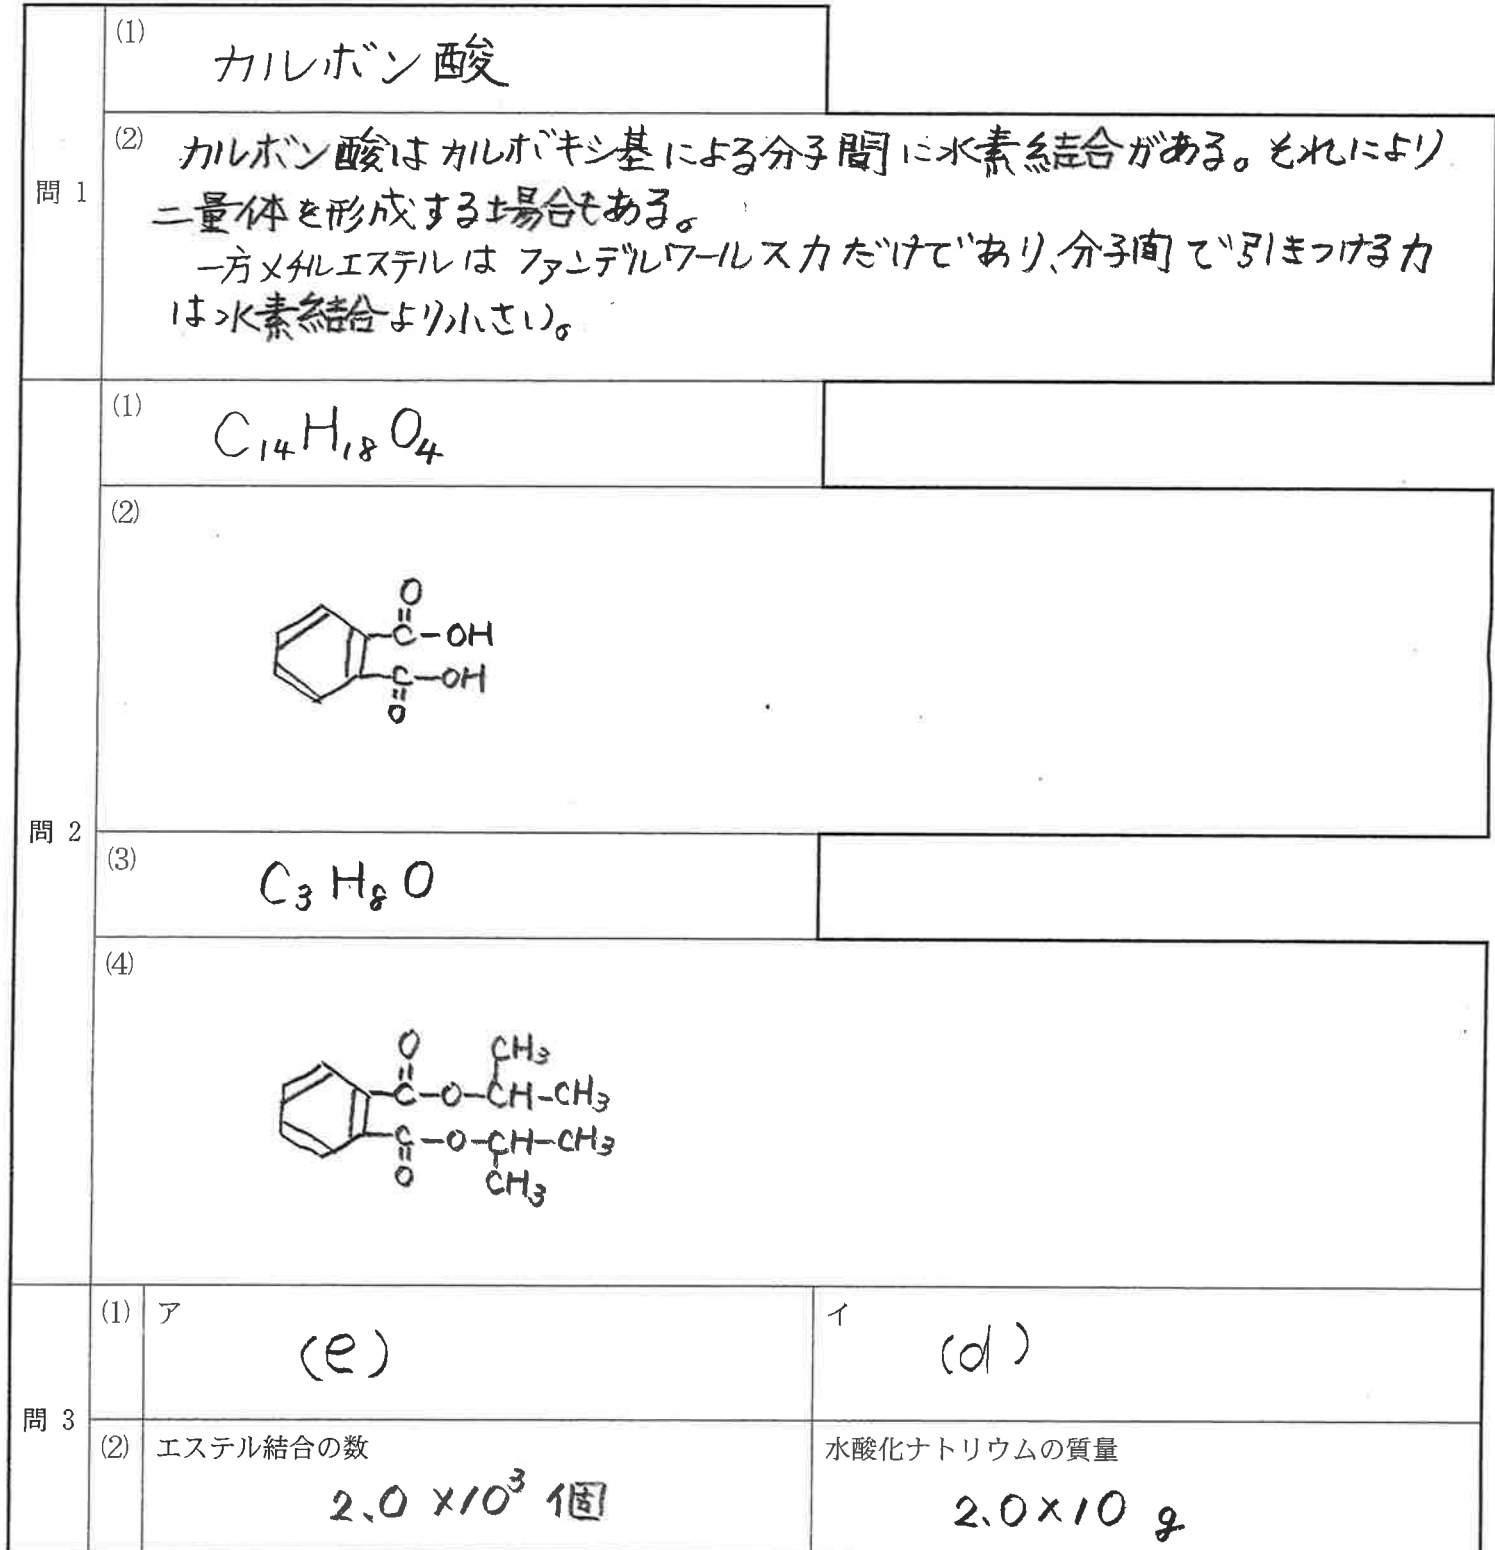 問 1
(1)
カルボン酸
(2) カルボン酸はカルボキシ基による分子間に水素結合がある。それにより
二量体を形成する場合もある。
一方メチルエステルはファンデルワールス力だけであり、分子間で引きつける力
は水素結合より小さい。
問 2
(1)
C₁₄H₁₈O₄
(2)
O
C-OH
C-OH
O
(3)
C₃H₈O
(4)
O CH₃
C-O-CH-CH₃
C-O-CH-CH₃
O CH₃
問 3
(1) ア (e) イ (d)
(2) エステル結合の数 水酸化ナトリウムの質量
2.0×10³ 個 2.0×10 g